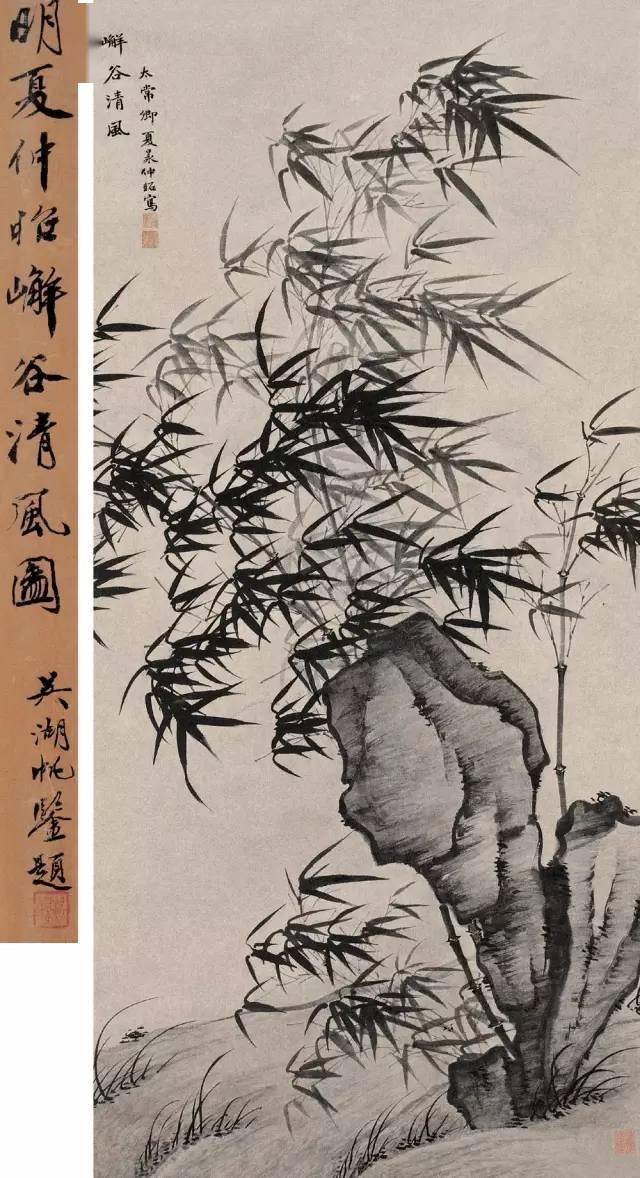 明夏仲昭嶰谷清風圖
吳湖帆鑒題
嶰谷清風
太常卿夏㫤仲昭寫